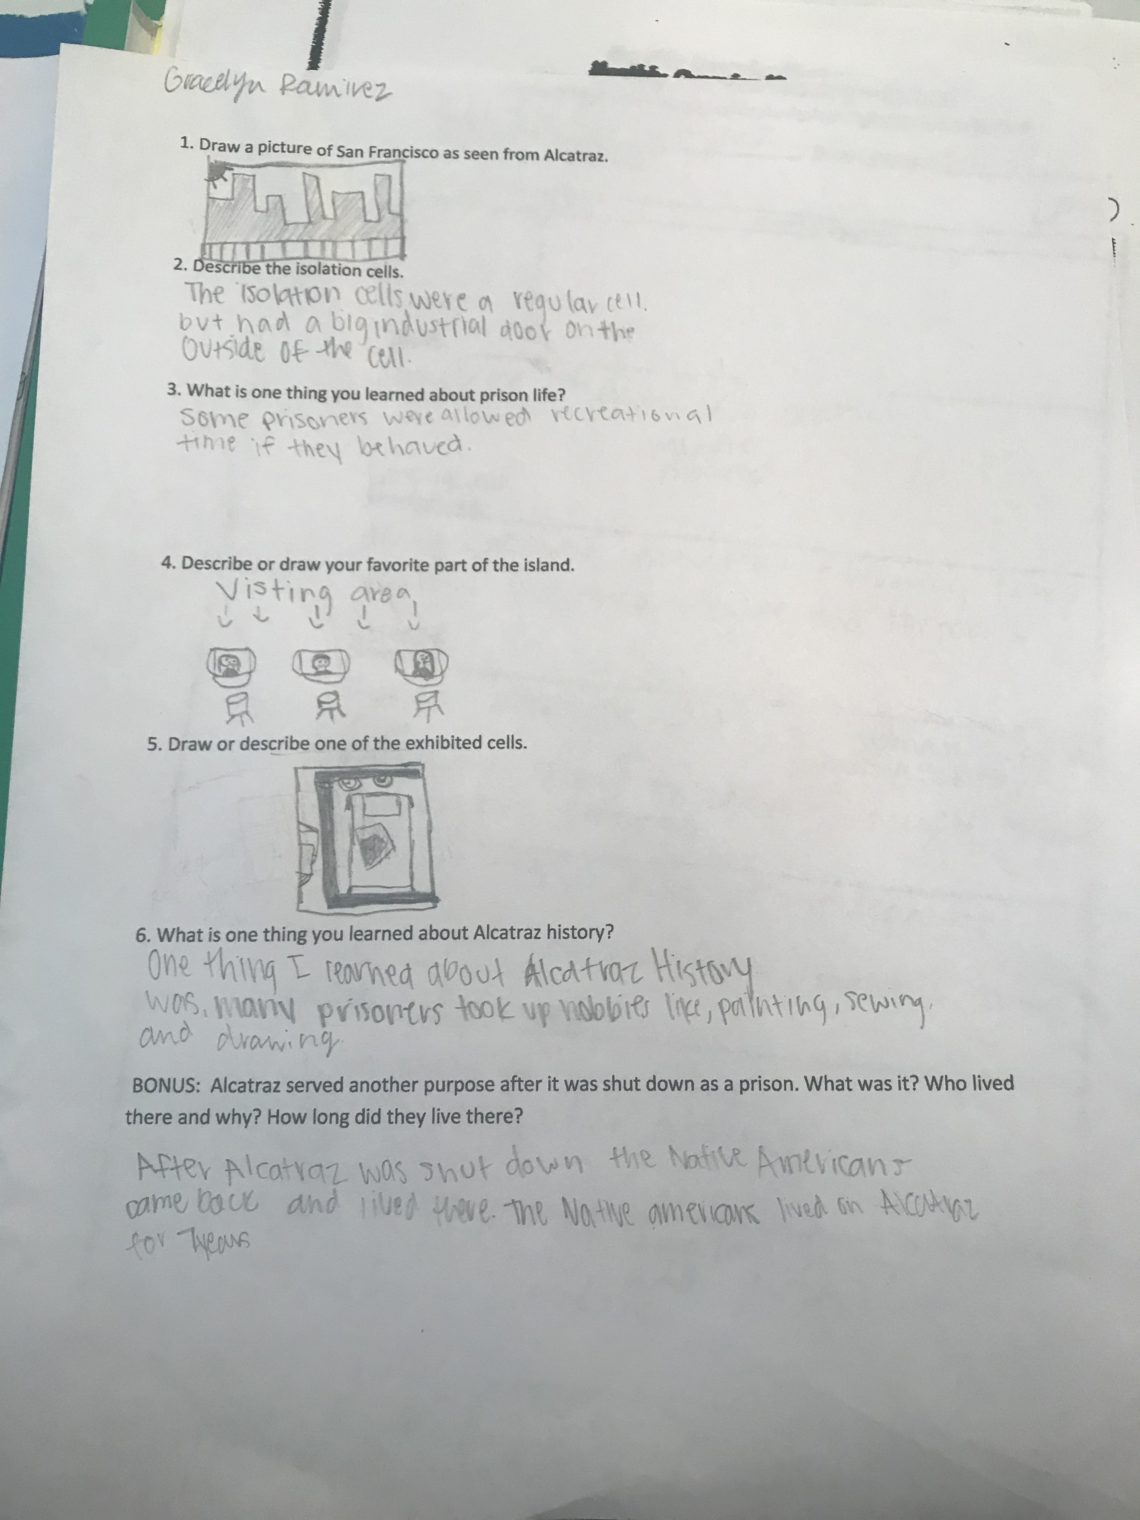 Gracelyn Ramirez
1. Draw a picture of San Francisco as seen from Alcatraz.
2. Describe the isolation cells.
The isolation cells were a regular cell.
but had a big industrial door on the
outside of the cell.
3. What is one thing you learned about prison life?
Some prisoners were allowed recreational
time if they behaved.
4. Describe or draw your favorite part of the island.
Visting area
5. Draw or describe one of the exhibited cells.
6. What is one thing you learned about Alcatraz history?
One thing I learned about Alcatraz History
was, many prisoners took up hobbies like, painting, sewing,
and drawing.
BONUS: Alcatraz served another purpose after it was shut down as a prison. What was it? Who lived
there and why? How long did they live there?
After Alcatraz was shut down the Native Americans
came back and lived there. The Native americans lived on Alcatraz
for 7years